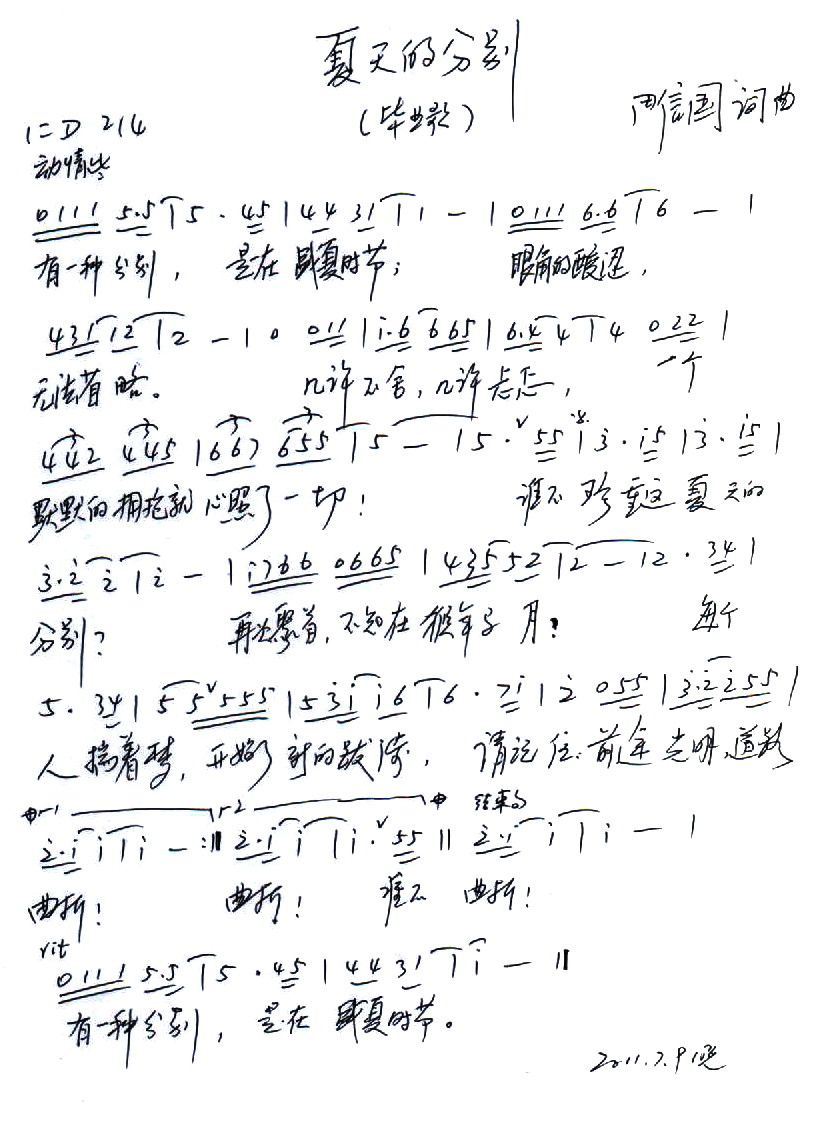 夏天的分别
(毕业歌)
1=D 2/4
信国 词曲
动情地
0 1 1 1 5·5 | 5 · 4 5 | 4 4 3 1 | 1 - | 0 1 1 1 6·6 | 6 - |
有一种分别, 是在盛夏时节; 眼角的酸涩,
4 3 1 1 2 | 2 - | 0 0 1 1 | i·6 6 6 5 | 6·4 4 | 4 0 2 2 |
无法省略。 几许不舍,几许忐忑, 一个
4 4 2 4 4 5 | 6 6 7 6 5 5 | 5 - | 5 · 5 5 | 3 · i 5 | 3 · i 5 |
默默的拥抱就心照了一切! 谁不珍重这夏天的
3·2 2 | 2 - | i 7 6 6 0 6 6 5 | 4 3 5 5 2 | 2 - | 2 · 3 4 |
分别? 再次聚首,不知在猴年马月? 每个
5 · 3 4 | 5 5 5 5 5 | 5 3 i i 6 | 6 · 7 i | 2 0 5 5 | 3·2 2 5 5 |
人揣着梦,开始了新的跋涉, 请记住:前途光明、道路
1 2 结束句
2·i i | i - :‖ 2·i i | i · 5 5 ‖ 2·i i | i - |
曲折! 曲折! 谁不 曲折!
rit
0 1 1 1 5·5 | 5 · 4 5 | 4 4 3 1 | i - ‖
有一种分别, 是在盛夏时节。
2011.7.9晚